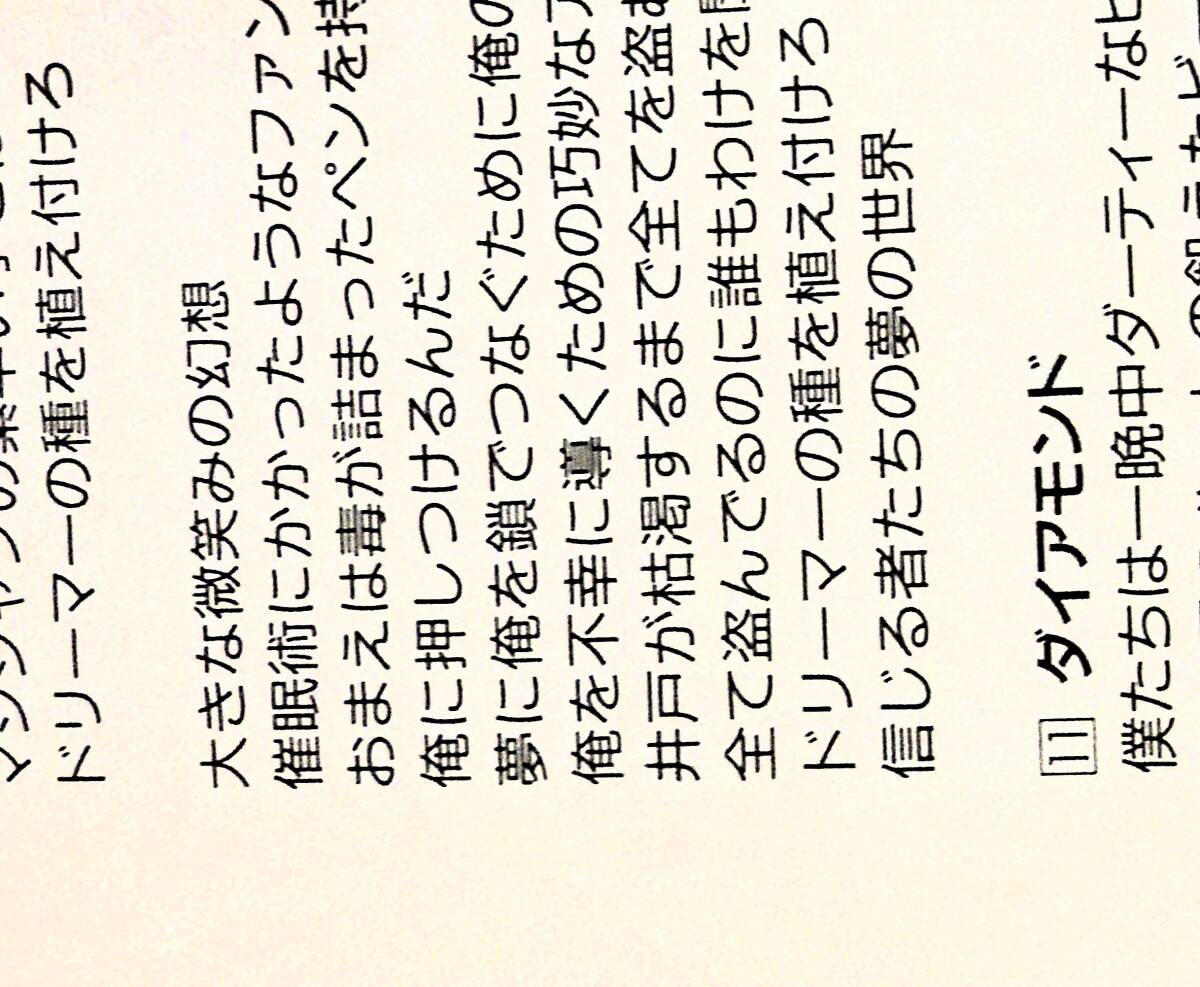 ドリーマーの種を植え付けろ
大きな微笑みの幻想
催眠術にかかったようなファン
おまえは毒が詰まったペンを持
俺に押しつけるんだ
夢に俺を鎖でつなぐために俺の
俺を不幸に導くための巧妙な
井戸が枯渇するまで全てを盗
全て盗んでるのに誰もわけを
ドリーマーの種を植え付けろ
信じる者たちの夢の世界
11 ダイアモンド
僕たちは一晩中ダーティーな